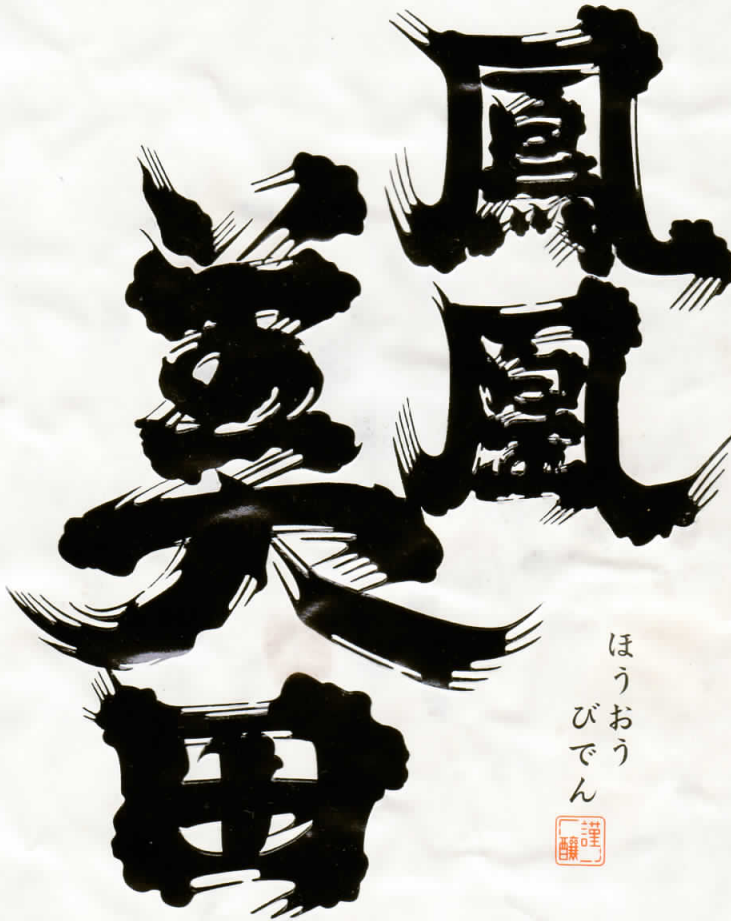 鳳凰
美田
ほうおう
びでん
謹
醸